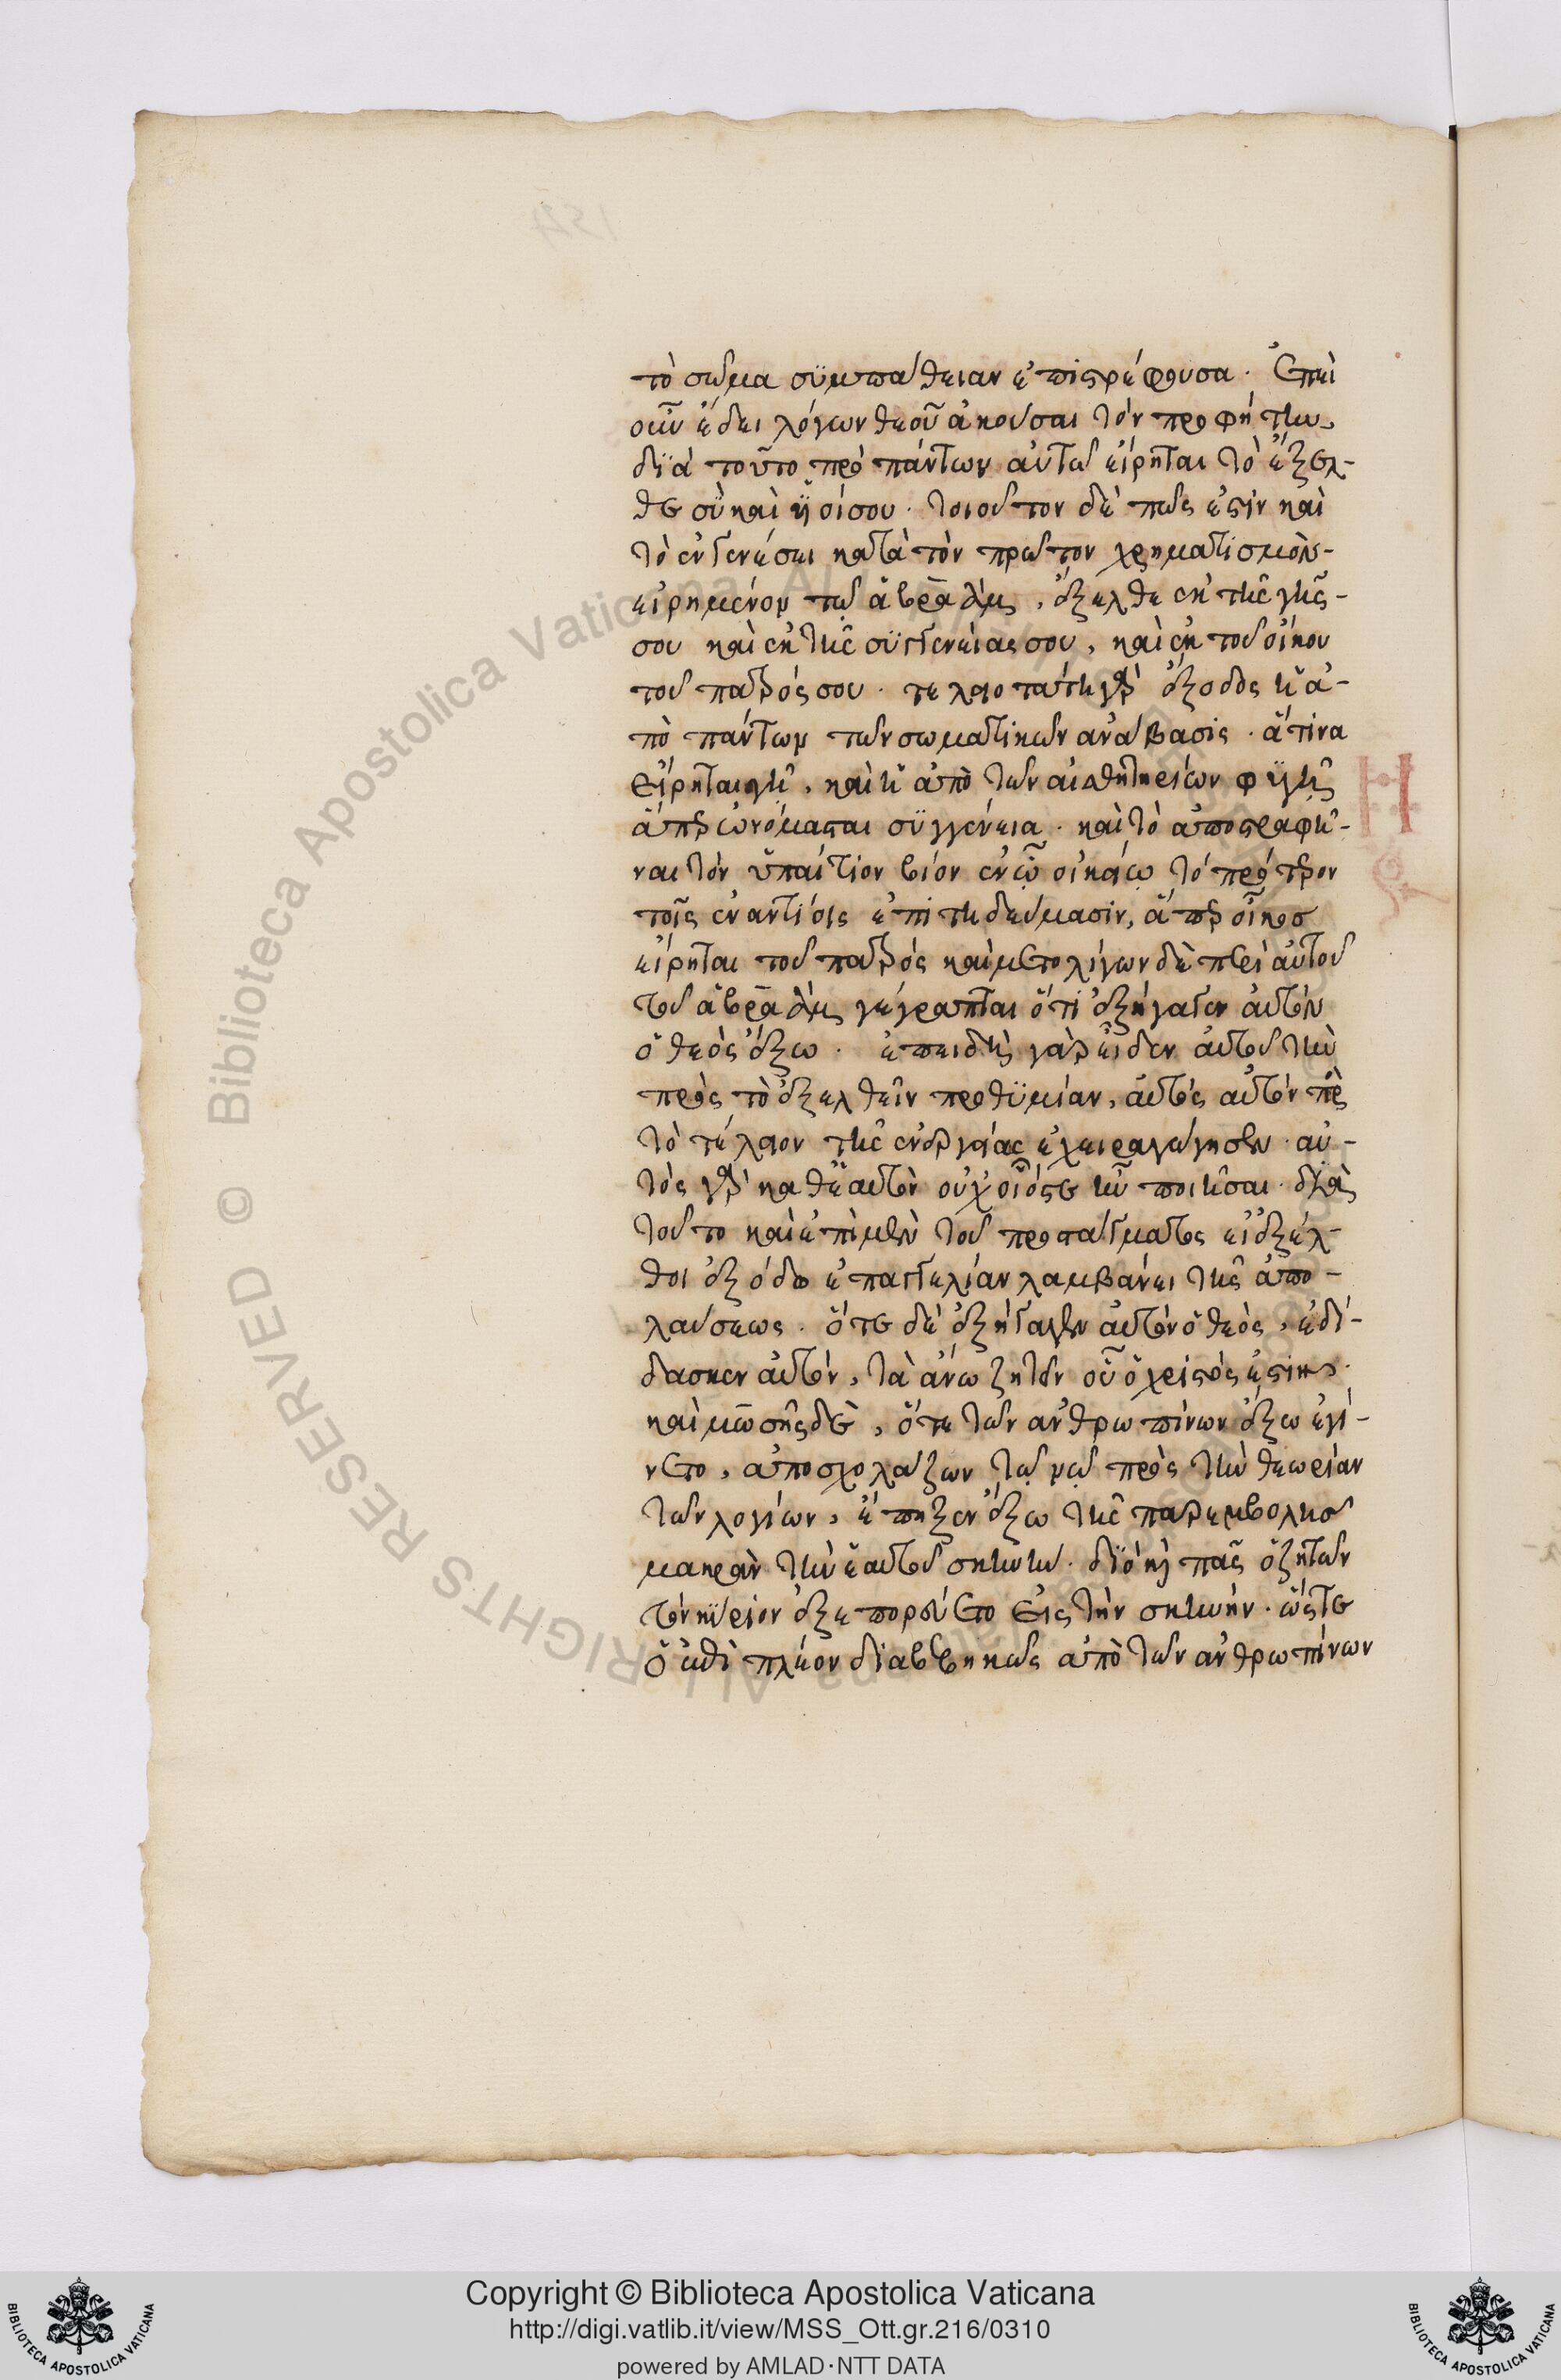 τὸ σῶμα συμπάθειαν ἐπιστρέφουσα. Ἐπεὶ
οὖν ἔδει λόγων θεοῦ ἀκοῦσαι τὸν προφήτην,
διὰ τοῦτο πρὸ πάντων αὐτῶ εἴρηται τὸ ἔξελ-
θε σὺ καὶ ὑιός σου. τοιοῦτον δέ πως ἐστὶν καὶ
τὸ ἐν γενέσει κατὰ τὸν πρῶτον χρηματισμὸν
εἰρημένον τῷ ἀβραάμ, ἔξελθε ἐκ τῆς γῆς
σου καὶ ἐκ τῆς συγγενείας σου, καὶ ἐκ τοῦ οἴκου
τοῦ πατρός σου. τελειοτάτη γὰρ ἔξοδος ἡ ἀ-
πὸ πάντων τῶν σωματικῶν ἀνάβασις. ἅτινα
εἴρηται γῆ, καὶ ἡ ἀπὸ τῶν αἰσθητηρίων φυγὴ
ἅπερ ὠνόμασται συγγένεια. καὶ τὸ ἀποστραφῆ-
ναι τὸν ὑπαίτιον βίον ἐν ᾧ οἰκείῳ τὸ πρότερον
τοῖς ἐναντίοις ἐπιτηδεύμασιν, ἅπερ οἶκοσ
εἴρηται τοῦ πατρός καὶ μετ ολίγων δὲ περὶ αὐτοῦ
τοῦ ἀβραάμ γέγραπται ὅτι ἐξήγαγεν αὐτὸν
ὁ θεὸς ἔξω. ἐπειδὴ γὰρ εἶδεν αὐτοῦ τὴν
πρὸς τὸ ἐξελθεῖν προθυμίαν, αὐτὸς αὐτὸν πρὸς
τὸ τέλειον τῆς ἐνεργείας ἐχειραγώγησεν. αὐ-
τὸς γὰρ καθ ἑαυτὸν οὐχ οἷός τε ἦν ποιῆσαι. διὰ
τοῦτο καὶ ἐπὶ μὲν τοῦ προστάγματος εἰ ἐξέλ-
θοι ἐξόδω ἐπαγγελίαν λαμβάνει τῆς ἀπο-
λαύσεως. ὅτε δὲ ἐξήγαγεν αὐτὸν ὁ θεὸς, ἐδί-
δασκεν αὐτόν, τὰ ἄνω ζητεῖν οὗ ὁ χριστός ἐστιν.
καὶ μωσῆς δὲ, ὅτε τῶν ἀνθρωπίνων ἔξω ἐγί-
νετο, ἀποσχολάζων τῷ νῷ πρὸς τὴν θεωρίαν
τῶν λογίων, ἔπηξεν ἔξω τῆς παρεμβολησ
μακρὰν τὴν ἑαυτοῦ σκηνήν. διὸ καὶ πᾶς ὁ ζητῶν
τὸν κύριον ἐξεπορεύετο εἰς τὴν σκηνήν. ὥστε
ὁ ἐπὶ πλέον διαβεβηκὼς ἀπὸ τῶν ἀνθρωπίνων
Copyright © Biblioteca Apostolica Vaticana
http://digi.vatlib.it/view/MSS_Ott.gr.216/0310
powered by AMLAD·NTT DATA